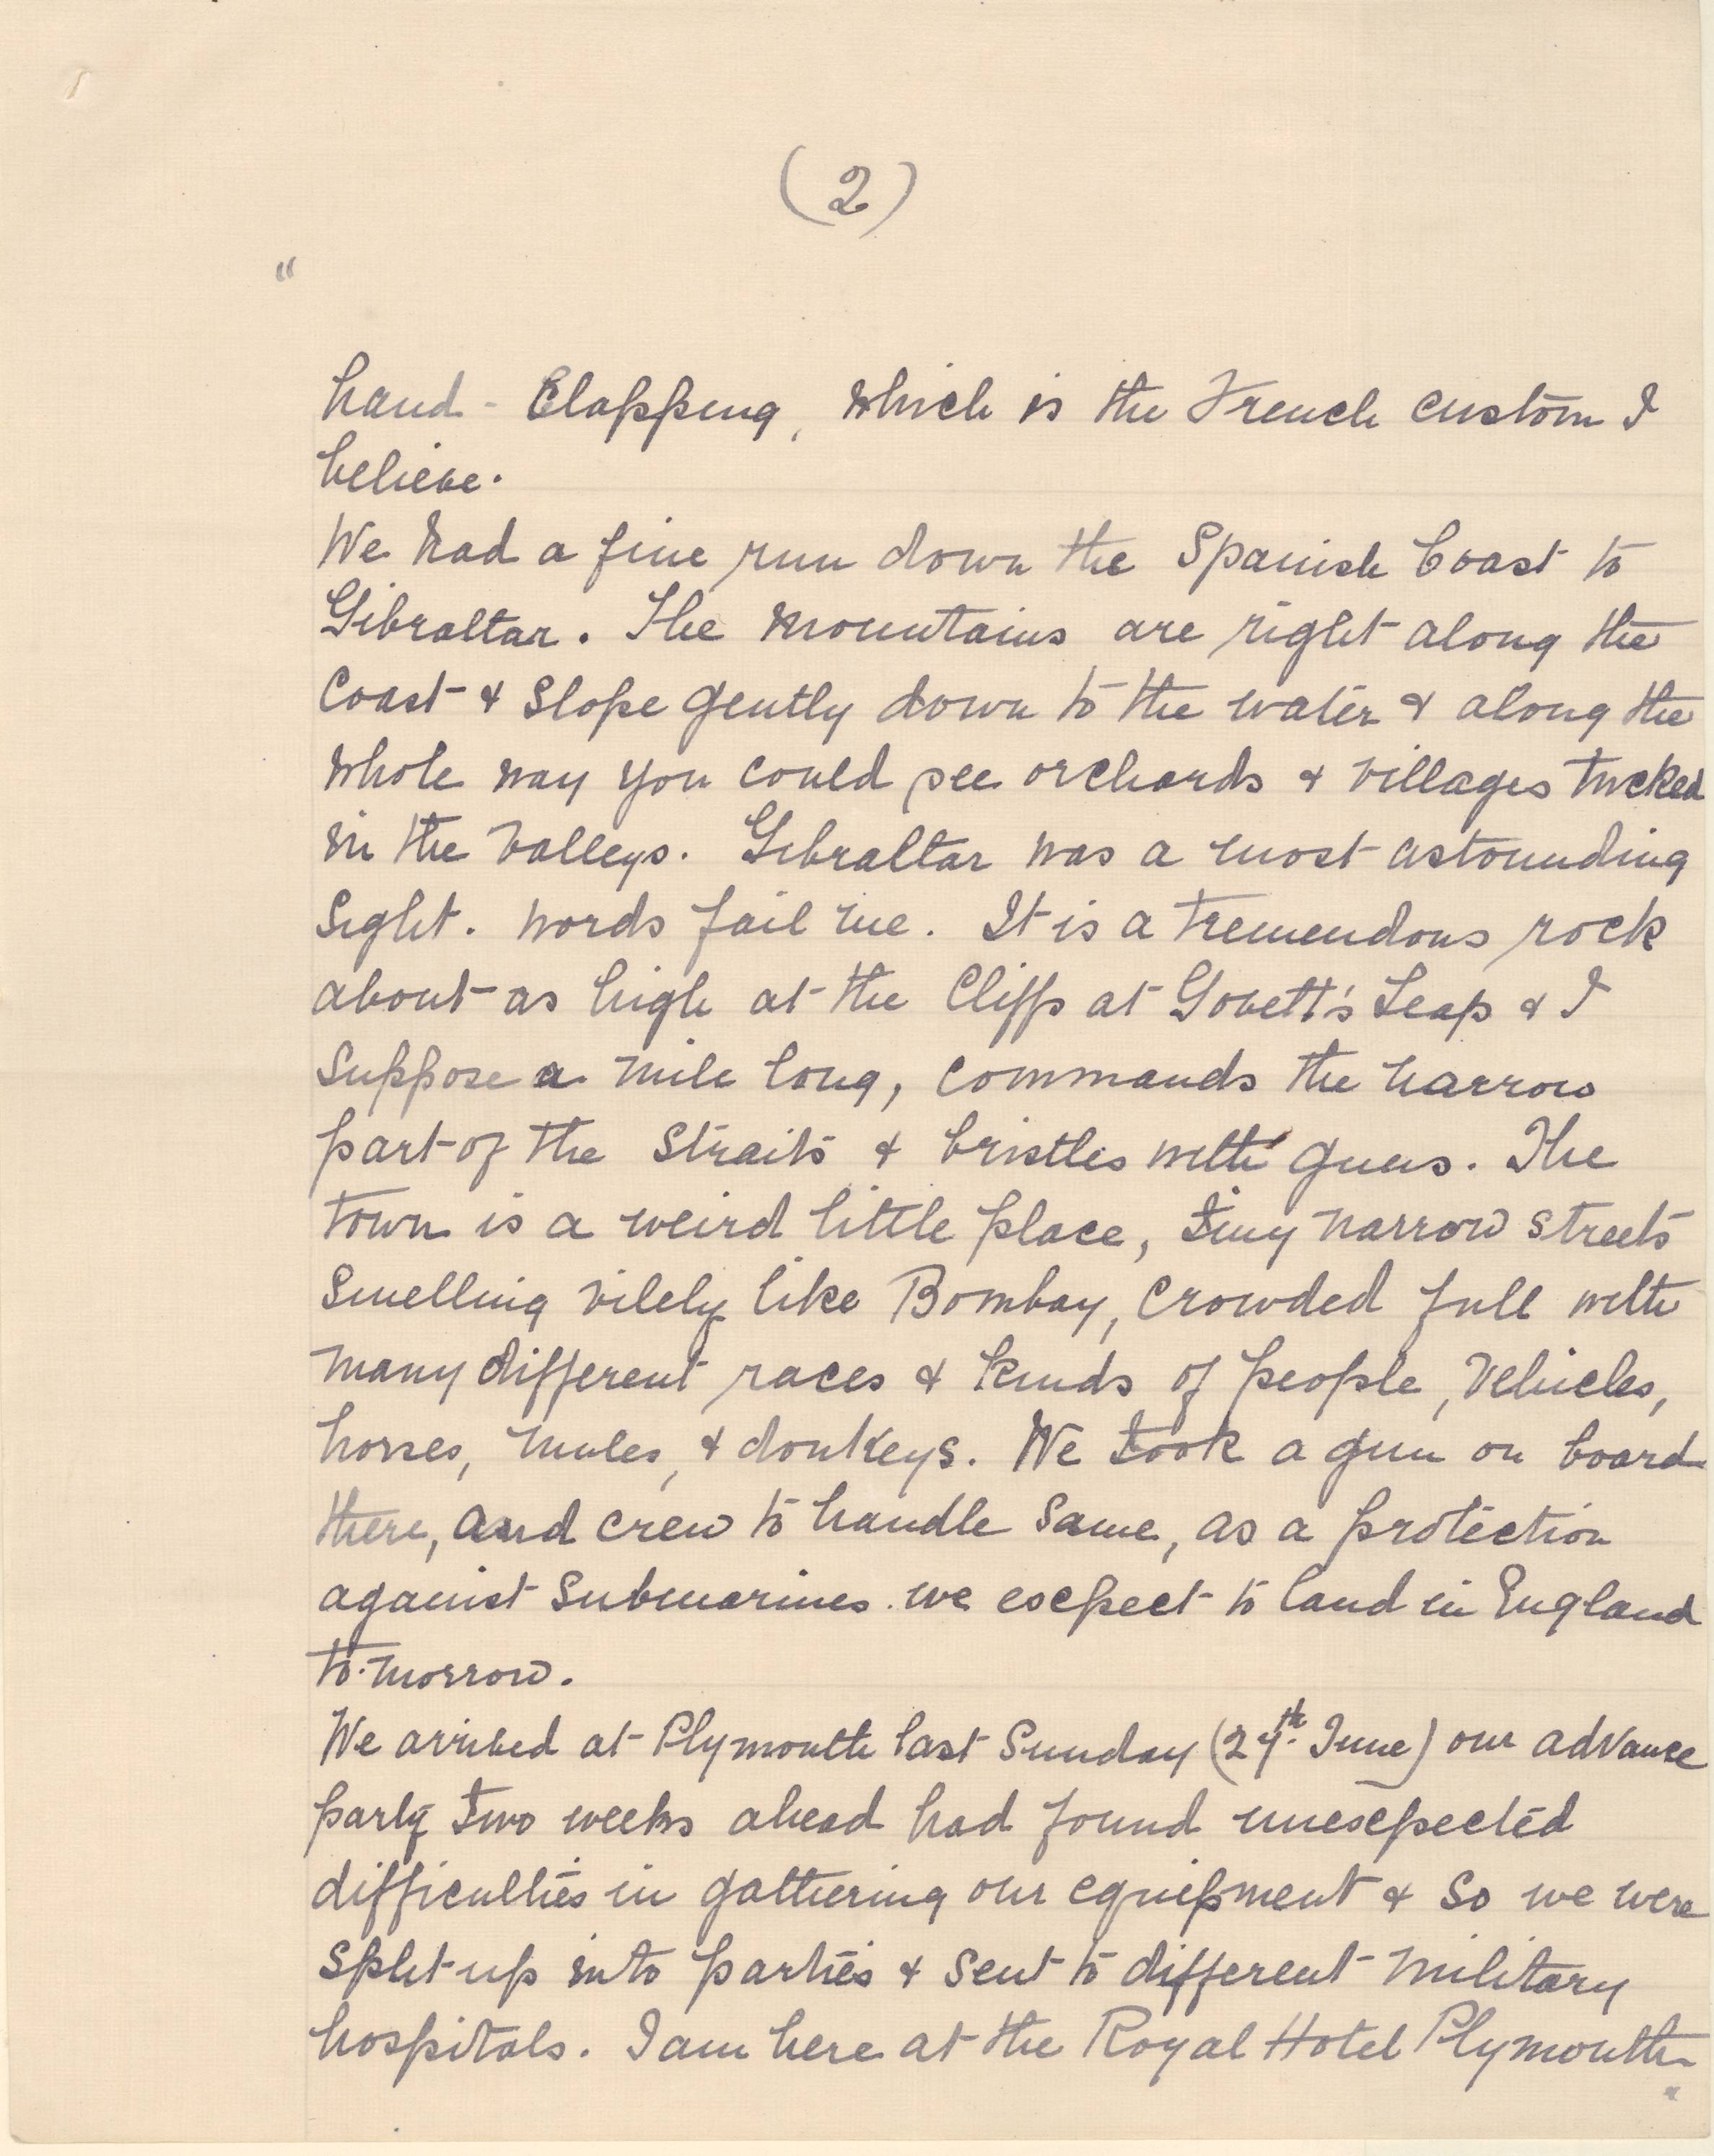 (2)
"
hand - Clapping, which is the French custom I
believe.
We had a fine run down the Spanish Coast to
Gibraltar. The mountains are right along the
Coast & Slope gently down to the water & along the
whole way you could see orchards & villages tucked
in the valleys. Gibraltar was a most astounding
Sight. words fail me. It is a tremendous rock
about as high at the Cliffs at Govett's Leap & I
Suppose a mile long, commands the narrow
part of the Straits & bristles with guns. The
town is a weird little place, tiny narrow streets
Smelling vilely like Bombay, crowded full with
many different races & kinds of people, vehicles,
horses, mules, & donkeys. We took a gun on board
there, and crew to handle same, as a protection
against Submarines. we expect to land in England
to-morrow.
We arrived at Plymouth last Sunday (27th. June) our advance
party two weeks ahead had found unexpected
difficulties in gathering our equipment & so we were
Split up into parties & sent to different military
hospitals. I am here at the Royal Hotel Plymouth
"